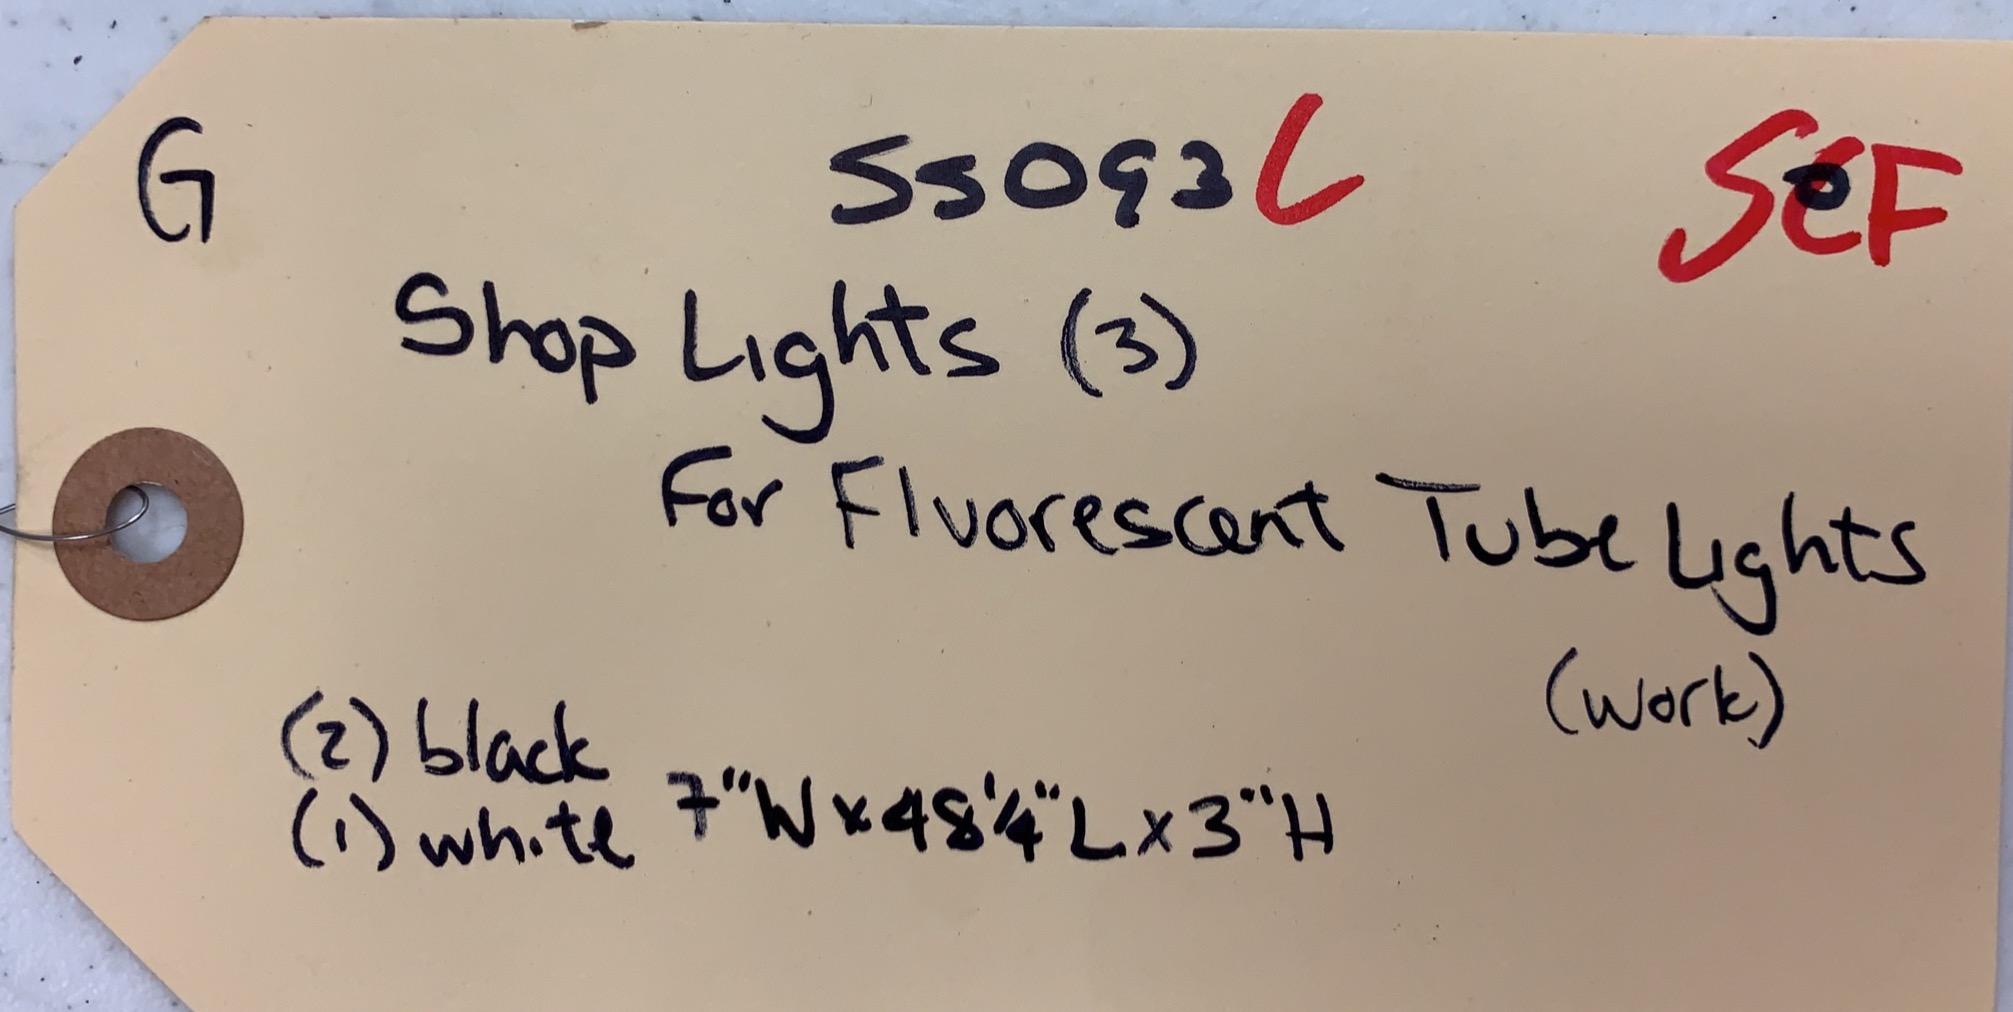 G SS093L SeF
Shop Lights (3)
For Fluorescent Tube Lights
(work)
(2) black
(1) white 7"W x 48 1/4" L x 3" H